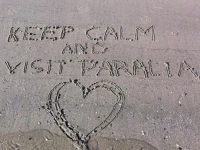 KEEP CALM
AND
VISIT PARALIA